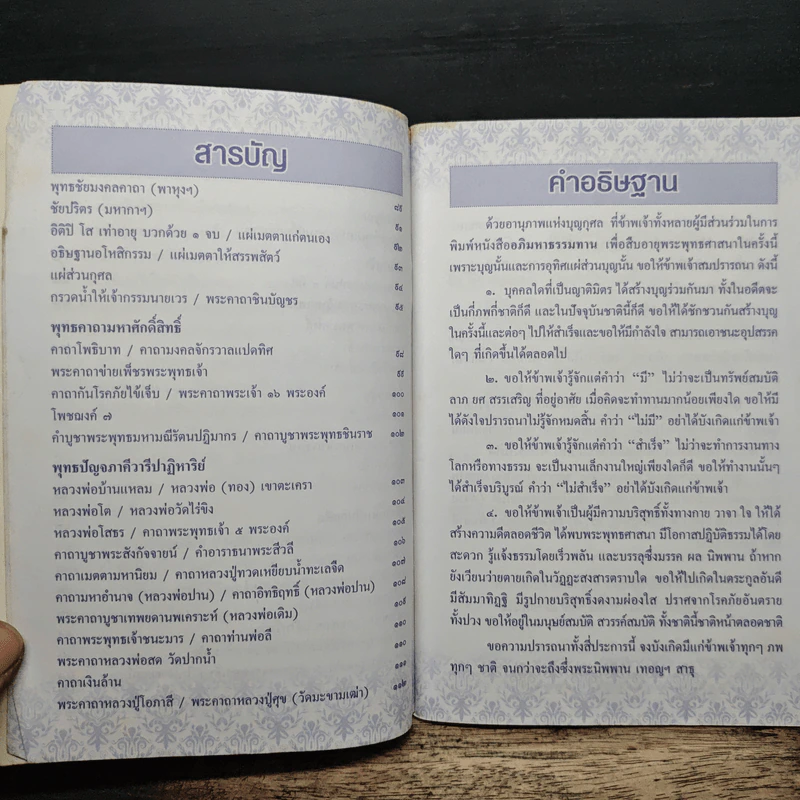 สารบัญ
พุทธชัยมงคลคาถา (พาหุงฯ)
ชัยปริตร (มหากาฯ) ๘๕
อิติปิ โส เท่าอายุ บวกด้วย ๑ จบ / แผ่เมตตาแก่ตนเอง ๙๑
อธิษฐานอโหสิกรรม / แผ่เมตตาให้สรรพสัตว์ ๙๒
แผ่ส่วนกุศล ๙๓
กรวดน้ำให้เจ้ากรรมนายเวร / พระคาถาชินบัญชร ๙๔
๙๕
พุทธคาถามหาศักดิ์สิทธิ์
คาถาโพธิบาท / คาถามงคลจักรวาลแปดทิศ
พระคาถาข่ายเพ็ชรพระพุทธเจ้า ๙๘
คาถากันโรคภัยไข้เจ็บ / พระคาถาพระเจ้า ๑๖ พระองค์ ๙๙
โพชฌงค์ ๗ ๑๐๐
๑๐๑
คำบูชาพระพุทธมหามณีรัตนปฏิมากร / คาถาบูชาพระพุทธชินราช ๑๐๒
พุทธปัญจภาคีวารีปาฏิหาริย์
หลวงพ่อบ้านแหลม / หลวงพ่อ (ทอง) เขาตะเครา ๑๐๓
หลวงพ่อโต / หลวงพ่อวัดไร่ขิง ๑๐๔
หลวงพ่อโสธร / คาถาพระพุทธเจ้า ๕ พระองค์ ๑๐๕
คาถาบูชาพระสังกัจจายน์ / คำอาราธนาพระสีวลี ๑๐๖
คาถาเมตตามหานิยม / คาถาหลวงปู่ทวดเหยียบน้ำทะเลจืด ๑๐๗
คาถามหาอำนาจ (หลวงพ่อปาน) / คาถาอิทธิฤทธิ์ (หลวงพ่อปาน) ๑๐๘
พระคาถาบูชาเทพยดานพเคราะห์ (หลวงพ่อเดิม) ๑๐๙
คาถาพระพุทธเจ้าชนะมาร / คาถาท่านพ่อลี ๑๑๐
พระคาถาหลวงพ่อสด วัดปากน้ำ ๑๑๐
คาถาเงินล้าน ๑๑๑
พระคาถาหลวงปู่โอภาสี / พระคาถาหลวงปู่ศุข (วัดมะขามเฒ่า) ๑๑๒
คำอธิษฐาน
ด้วยอานุภาพแห่งบุญกุศล ที่ข้าพเจ้าทั้งหลายผู้มีส่วนร่วมในการ
พิมพ์หนังสืออภิมหาธรรมทาน เพื่อสืบอายุพระพุทธศาสนาในครั้งนี้
เพราะบุญนั้นและการอุทิศแผ่ส่วนบุญนั้น ขอให้ข้าพเจ้าสมปรารถนา ดังนี้
๑. บุคคลใดที่เป็นญาติมิตร ได้สร้างบุญร่วมกันมา ทั้งในอดีตจะ
เป็นกี่ภพกี่ชาติก็ดี และในปัจจุบันชาตินี้ก็ดี ขอให้ได้ชักชวนกันสร้างบุญ
ในครั้งนี้และต่อๆ ไปให้สำเร็จและขอให้มีกำลังใจ สามารถเอาชนะอุปสรรค
ใดๆ ที่เกิดขึ้นได้ตลอดไป
๒. ขอให้ข้าพเจ้ารู้จักแต่คำว่า “มี” ไม่ว่าจะเป็นทรัพย์สมบัติ
ลาภ ยศ สรรเสริญ ที่อยู่อาศัย เมื่อคิดจะทำทานมากน้อยเพียงใด ขอให้มี
ได้ดังใจปรารถนาไม่รู้จักหมดสิ้น คำว่า “ไม่มี” อย่าได้บังเกิดแก่ข้าพเจ้า
๓. ขอให้ข้าพเจ้ารู้จักแต่คำว่า “สำเร็จ” ไม่ว่าจะทำการงานทาง
โลกหรือทางธรรม จะเป็นงานเล็กงานใหญ่เพียงใดก็ดี ขอให้ทำงานนั้นๆ
ได้สำเร็จบริบูรณ์ คำว่า “ไม่สำเร็จ” อย่าได้บังเกิดแก่ข้าพเจ้า
๔. ขอให้ข้าพเจ้าเป็นผู้มีความบริสุทธิ์ทั้งทางกาย วาจา ใจ ให้ได้
สร้างความดีตลอดชีวิต ได้พบพระพุทธศาสนา มีโอกาสปฏิบัติธรรมได้โดย
สะดวก รู้แจ้งธรรมโดยเร็วพลัน และบรรลุซึ่งมรรค ผล นิพพาน ถ้าหาก
ยังเวียนว่ายตายเกิดในวัฏฏะสงสารตราบใด ขอให้ไปเกิดในตระกูลอันดี
มีสัมมาทิฏฐิ มีรูปกายบริสุทธิ์งดงามผ่องใส ปราศจากโรคภัยอันตราย
ทั้งปวง ขอให้อยู่ในมนุษย์สมบัติ สวรรค์สมบัติ ทั้งชาตินี้ชาติหน้าตลอดชาติ
ขอความปรารถนาทั้งสี่ประการนี้ จงบังเกิดมีแก่ข้าพเจ้าทุกๆ ภพ
ทุกๆ ชาติ จนกว่าจะถึงซึ่งพระนิพพาน เทอญฯ สาธุ